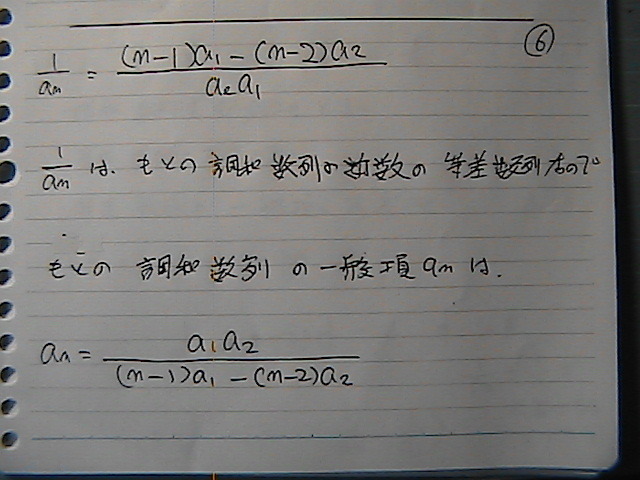 ⑥
1/aₙ = ((n-1)a₁ - (n-2)a₂)/(a₂a₁)
1/aₙ は、もとの調和数列の逆数の等差数列なので
もとの調和数列の一般項 aₙ は、
aₙ = (a₁a₂)/((n-1)a₁ - (n-2)a₂)